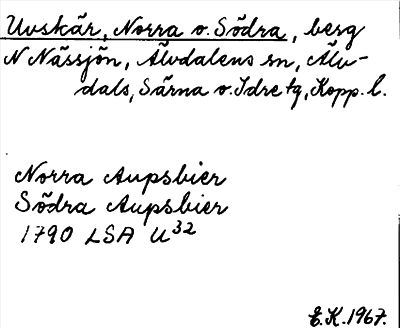 Uvskär, Norra o. Södra, berg
N Nässjön, Älvdalens sn, Älv-
dals, Särna o. Idre tg, Kopp. l.
Norra Aupsbier
Södra Aupsbier
1790 LSA U³²
E.K. 1967.